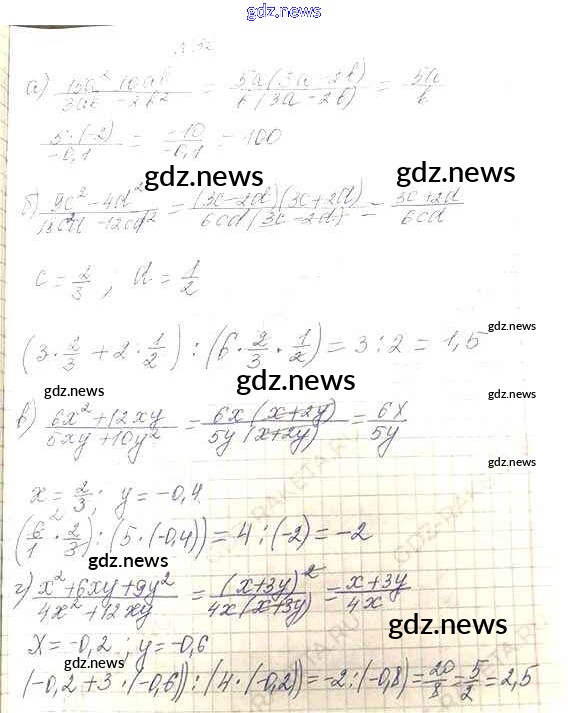 gdz.news
gdz.news
а) (15a² - 10ab)/(3ab - 2b²) = 5a(3a - 2b)/b(3a - 2b) = 5a/b
5·(-2)/-0,1 = -10/-0,1 = 100
gdz.news
gdz.news
б) (9c² - 4d²)/(18c²d - 12cd²) = (3c - 2d)(3c + 2d)/6cd(3c - 2d) = (3c + 2d)/6cd
c = 2/3 ; d = 1/2
gdz.news
(3·2/3 + 2·1/2) : (6·2/3·1/2) = 3 : 2 = 1,5
gdz.news
gdz.news
в) (6x² + 12xy)/(5xy + 10y²) = 6x(x+2y)/5y(x+2y) = 6x/5y
gdz.news
x = 2/3 ; y = -0,4
(6/1 · 2/3) : (5·(-0,4)) = 4 : (-2) = -2
gdz.news
г) (x² + 6xy + 9y²)/(4x² + 12xy) = (x+3y)²/4x(x+3y) = (x+3y)/4x
gdz.news
x = -0,2 ; y = -0,6
gdz.news
(-0,2 + 3·(-0,6)) : (4·(-0,2)) = -2 : (-0,8) = 20/8 = 5/2 = 2,5
GDZ-RAKETA.RU